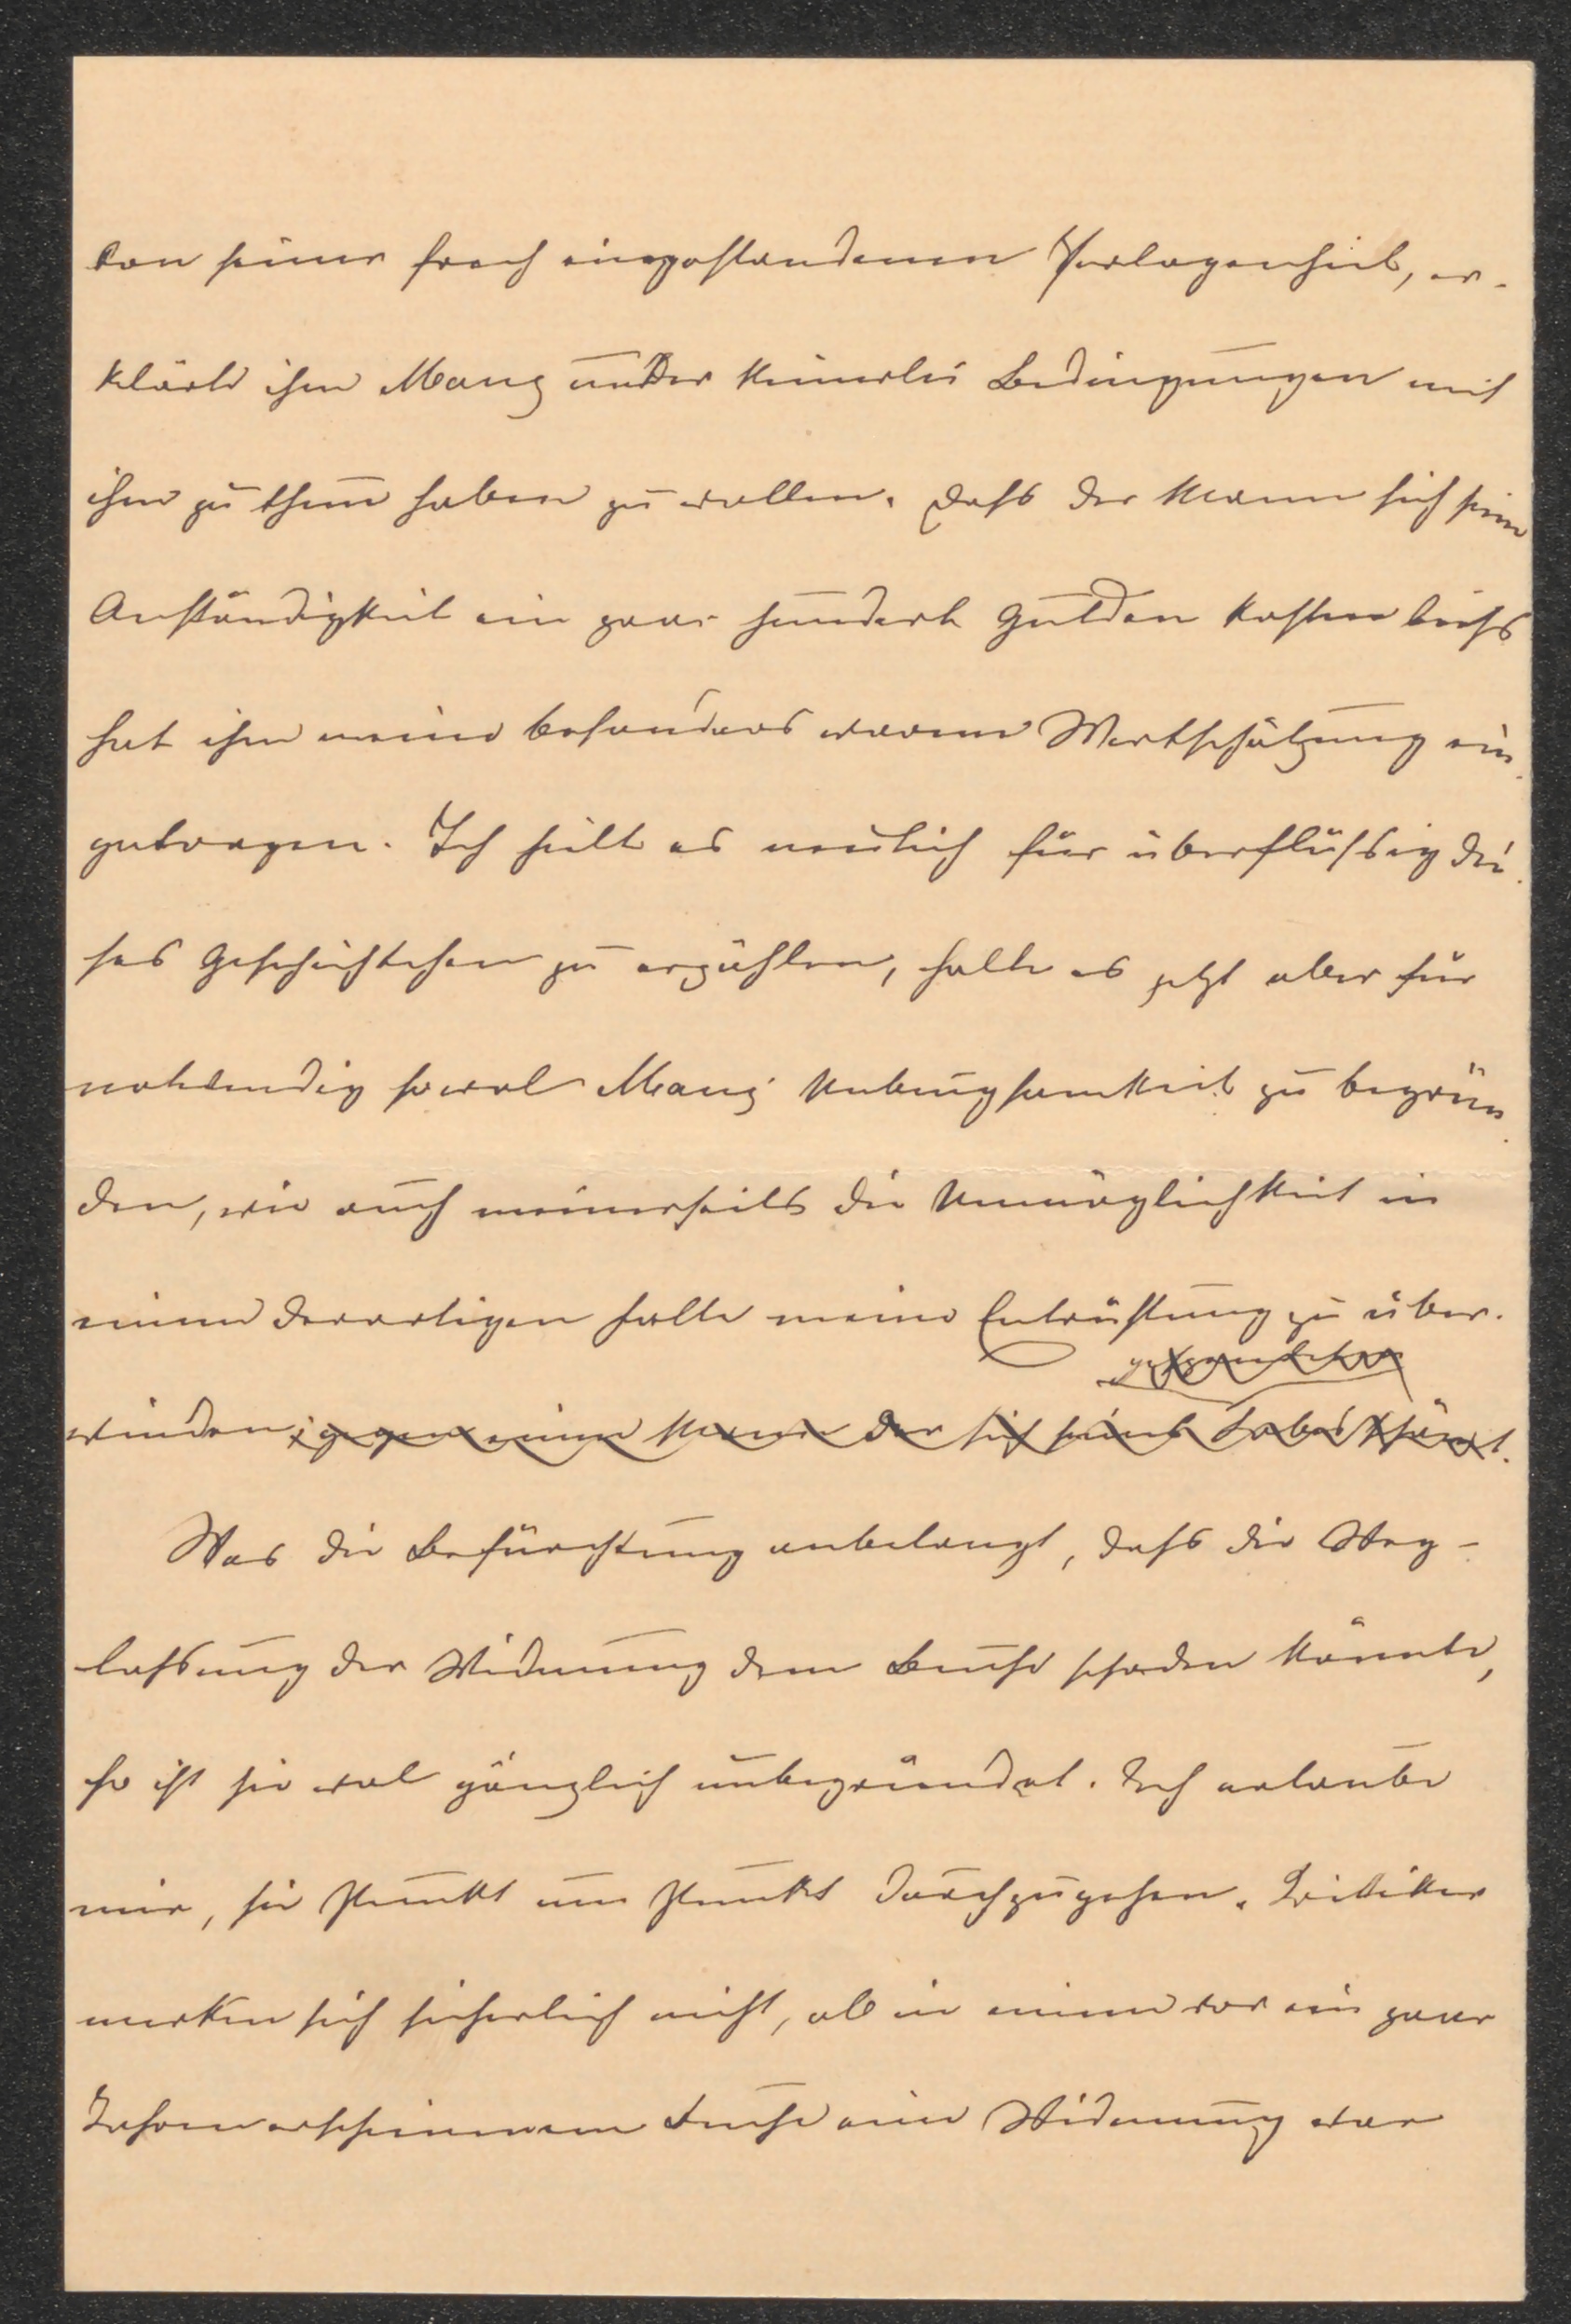 von seiner frech eingestandenen Verlogenheit, er-
klärte ihm Mang unter keinerlei Bedingungen mit
ihm zu thun haben zu wollen. Dass der Mann sich seine
Anständigkeit ein paar hundert Gulden kosten liess
hat ihm meine besonders warme Wertschätzung ein-
getragen. Ich hielt es neulich für überflüssig die-
ses Geschichtchen zu erzählen, halte es jetzt aber für
notwendig sowol Mang' Unbeugsamkeit zu begrün-
den, wie auch meinerseits die Unmöglichkeit in
einem derartigen Falle meine Entrüstung zu über-
winden; gegen einen Mann der sich seines Lobes schämt.
Was die Befürchtung anbelangt, dass die Weg-
lassung der Widmung dem Buche schaden könnte,
so ist sie wol gänzlich unbegründet. Ich erlaube
mir, sie Punkt um Punkt durchzugehen. Kritiker
merken sich sicherlich nicht, ob in einem vor ein paar
Jahren erschienenen Buche eine Widmung war